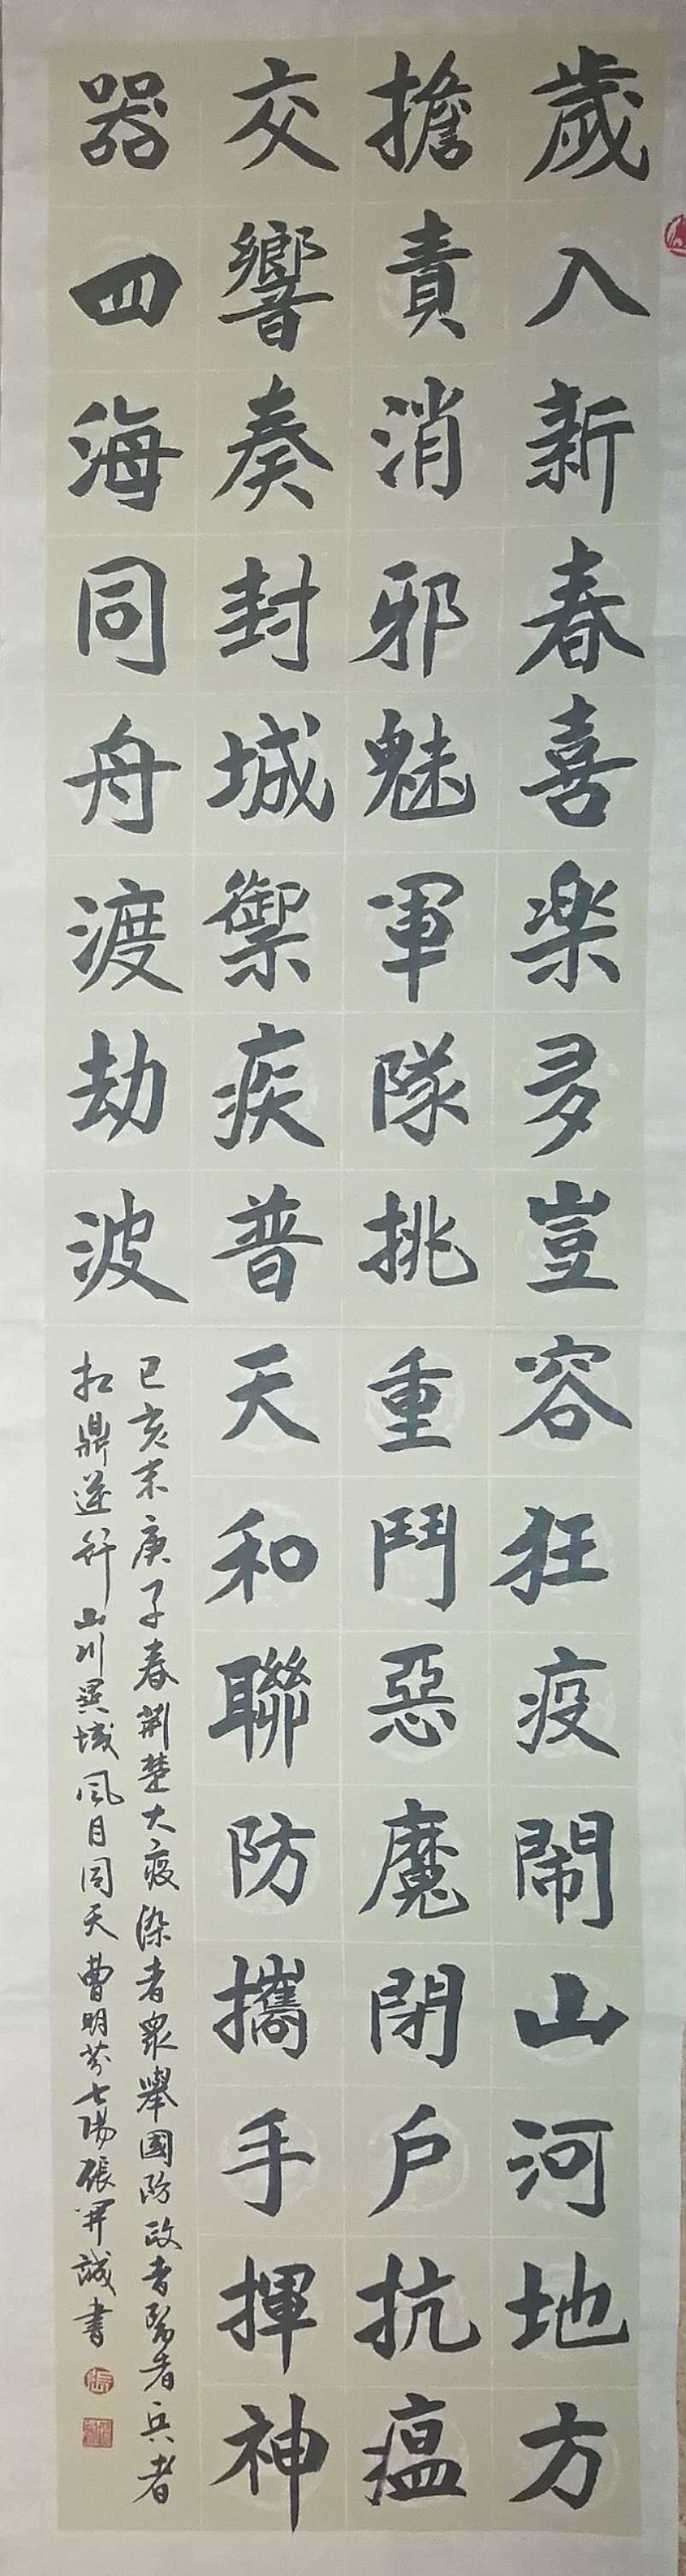 歲入新春喜楽多豈容狂疫鬧山河地方
擔責消邪魅軍隊挑重鬥惡魔閉户抗瘟
交響奏封城禦疾普天和聯防攜手揮神
器四海同舟渡劫波
己亥末庚子春荆楚大疫染者眾舉國防政者醫者兵者
扛鼎逆行山川異域風月同天曹明芬七陽張軍誠書